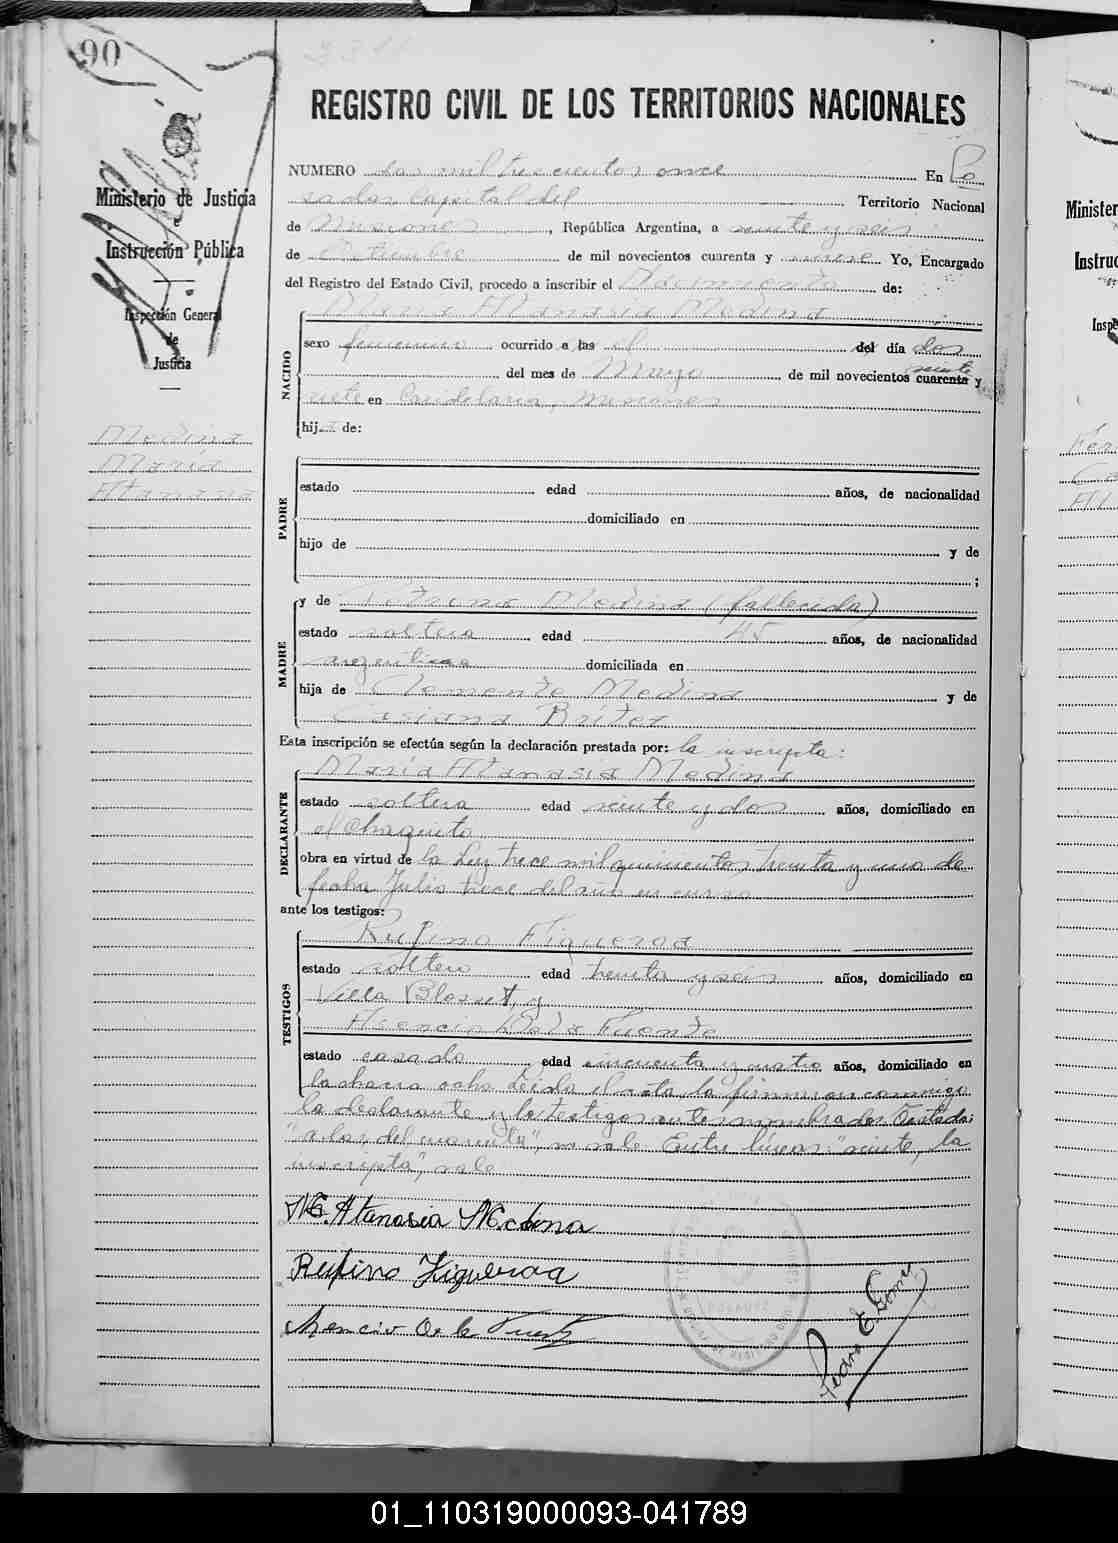 90
2311
REGISTRO CIVIL DE LOS TERRITORIOS NACIONALES
Ministerio de Justicia
e
Instrucción Pública
Inspección General
de
Justicia
Medina
María
Atanasia
NUMERO dos mil trescientos once En Po
sadas Capital del Territorio Nacional
de Misiones, República Argentina, a veinte y seis
de Octubre de mil novecientos cuarenta y nueve Yo, Encargado
del Registro del Estado Civil, procedo a inscribir el Nacimiento de:
María Atanasia Medina
NACIDO
sexo femenino ocurrido a las el del día dos
del mes de Mayo de mil novecientos cuarenta y
veinte
siete en Candelaria, Misiones
hija de:
PADRE
estado edad años, de nacionalidad
domiciliado en
hijo de y de
;
MADRE
y de Petrona Medina (fallecida)
estado soltera edad 45 años, de nacionalidad
argentina domiciliada en
hija de Clemente Medina y de
Casiana Britez
Esta inscripción se efectúa según la declaración prestada por: la inscripta:
DECLARANTE
María Atanasia Medina
estado soltera edad veinte y dos años, domiciliado en
el Chaquito
obra en virtud de la Ley trece mil quinientos treinta y uno de
fecha Julio trece del año en curso
ante los testigos:
TESTIGOS
Rufino Figueroa
estado soltero edad treinta y seis años, domiciliado en
Villa Blosset, y
Asencio de la Fuente
estado casado edad cincuenta y cuatro años, domiciliado en
la chacra ocho Leida el acta, la firmaron conmigo
la declarante y los testigos antes nombrados. Testado:
"a las, del cuarenta", no vale. Entre líneas: "veinte, la
inscripta", vale
M. Atanasia Medina
Rufino Figueroa
Asencio de la Fuente
Pedro E. Gomez
Minister
Instruc
Inspe
01_110319000093-041789